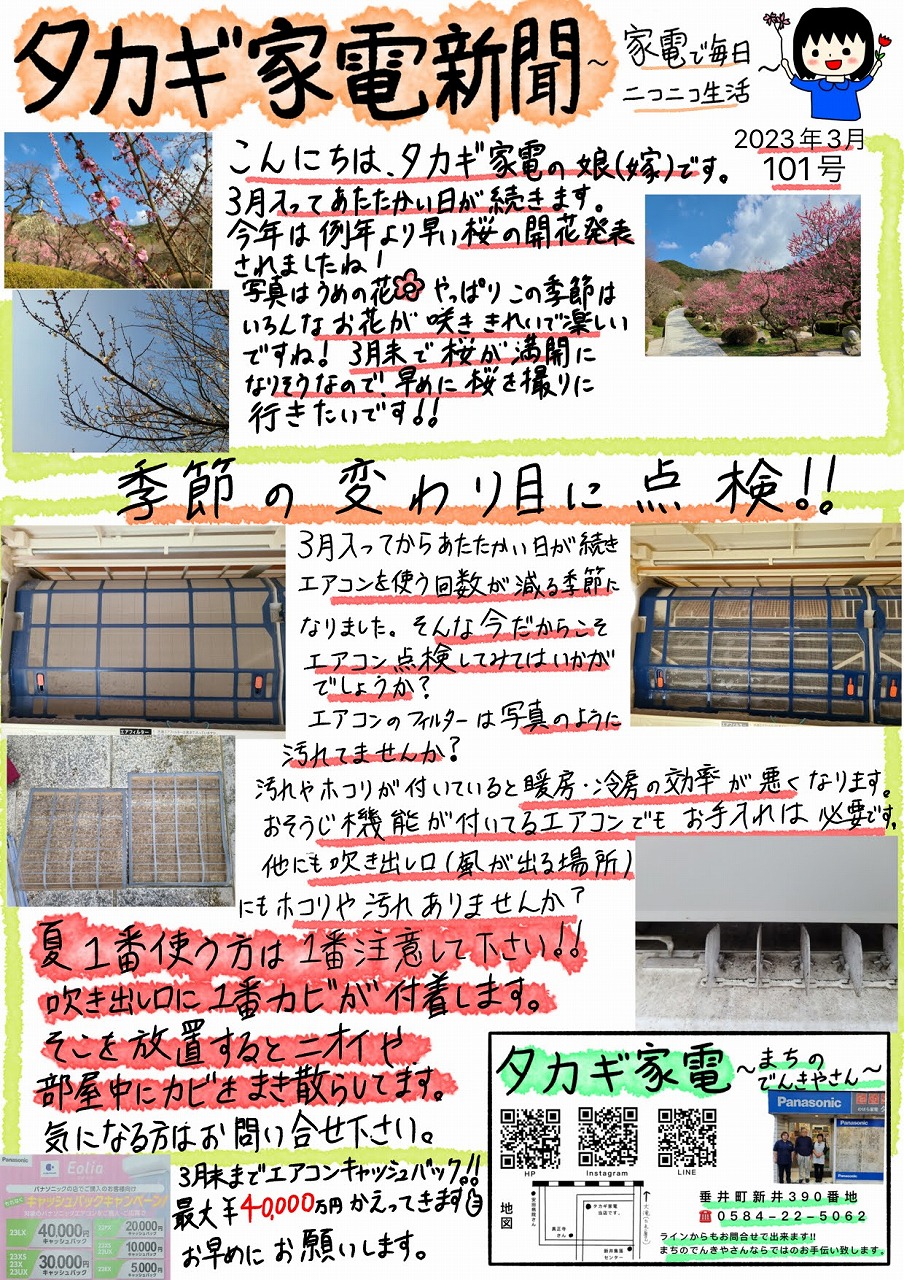 タカギ家電新聞
～家電で毎日
ニコニコ生活～
2023年3月
101号
こんにちは、タカギ家電の娘(嫁)です。
3月入ってあたたかい日が続きます。
今年は例年より早い桜の開花発表
されましたね!
写真はうめの花 やっぱりこの季節は
いろんなお花が咲ききれいで楽しい
ですね! 3月末で桜が満開に
なりそうなので、早めに桜を撮りに
行きたいです!!
季節の変わり目に点検!!
3月入ってからあたたかい日が続き
エアコンを使う回数が減る季節に
なりました。そんな今だからこそ
エアコン点検してみてはいかが
でしょうか?
エアコンのフィルターは写真のように
汚れてませんか?
汚れやホコリが付いていると暖房・冷房の効率が悪くなります。
おそうじ機能が付いてるエアコンでもお手入れは必要です。
他にも吹き出し口(風が出る場所)
にもホコリや汚れありませんか?
エアフィルター
夏1番使う方は1番注意して下さい!!
吹き出し口に1番カビが付着します。
そこを放置するとニオイや
部屋中にカビをまき散らしてます。
気になる方はお問い合せ下さい。
3月末までエアコンキャッシュバック!!
最大¥40,000万円かえってきます
お早めにお願いします。
Panasonic
Eolia
パナソニックの店でご購入のお客様向け
キャッシュバックキャンペーン
23LX
40,000円
キャッシュバック
20,000円
キャッシュバック
23XS
23X
23UX
30,000円
キャッシュバック
10,000円
キャッシュバック
5,000円
キャッシュバック
タカギ家電～まちの
でんきやさん～
Panasonic
HP
Instagram
LINE
地図
タカギ家電。
当店です。
真正寺
さん
新井集落
センター
垂井町新井390番地
☎0584-22-5062
ラインからもお問合せで出来ます!!
まちのでんきやさんならではのお手伝い致します。